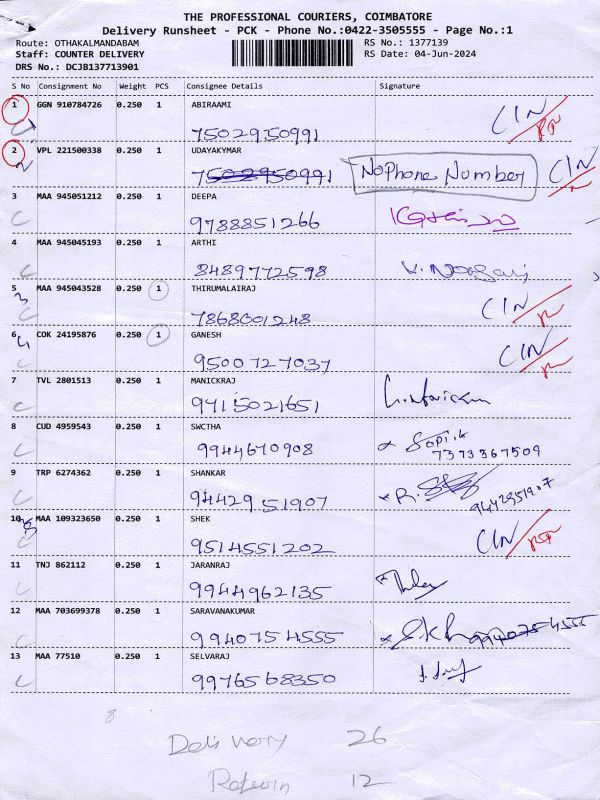 THE PROFESSIONAL COURIERS, COIMBATORE
Delivery Runsheet - PCK - Phone No.:0422-3505555 - Page No.:1
Route: OTHAKALMANDABAM RS No.: 1377139
Staff: COUNTER DELIVERY RS Date: 04-Jun-2024
DRS No.: DCJB137713901
S No Consignment No Weight PCS Consignee Details Signature
1 GGN 910784726 0.250 1 ABIRAAMI CIN
7502950991
2 VPL 221500338 0.250 1 UDAYAKYMAR
No Phone Number CIN
3 MAA 945051212 0.250 1 DEEPA
9788851266
4 MAA 945045193 0.250 1 ARTHI
8489772598
5 MAA 945043528 0.250 1 THIRUMALAIRAJ CIN
3 7868001248
6 COK 24195876 0.250 1 GANESH CIN
4 9500727037
7 TVL 2801513 0.250 1 MANICKRAJ
9415021651
8 CUD 4959543 0.250 1 SWCTHA
9944670908 7373367509
9 TRP 6274362 0.250 1 SHANKAR
9442951907 9442951907
10 MAA 109323650 0.250 1 SHEK CIN
9514551202
11 TNJ 862112 0.250 1 JARANRAJ
9944962135
12 MAA 703699378 0.250 1 SARAVANAKUMAR
9940754555 9940754555
13 MAA 77510 0.250 1 SELVARAJ
9976568350
Delivery 26
Return 12